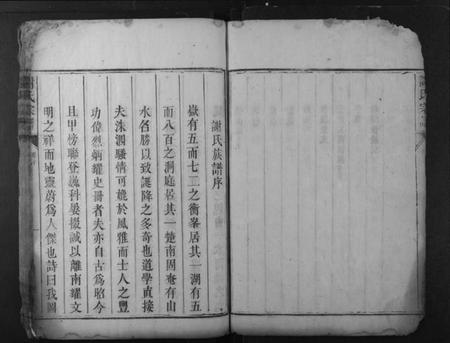 謝氏族譜序
嶽有五而七二之衡峯居其一湖有五
而八百之洞庭居其一楚南固奄有山
水名勝以致誕降之多奇也道學直接
夫洙泗騷情可繞於風雅而士人之豐
功偉烈炳耀史冊者夫亦自古爲昭今
且甲榜聯登巍科屢掇誠以離南耀文
明之祥而地靈蔚爲人傑也詩曰我圖
謝氏